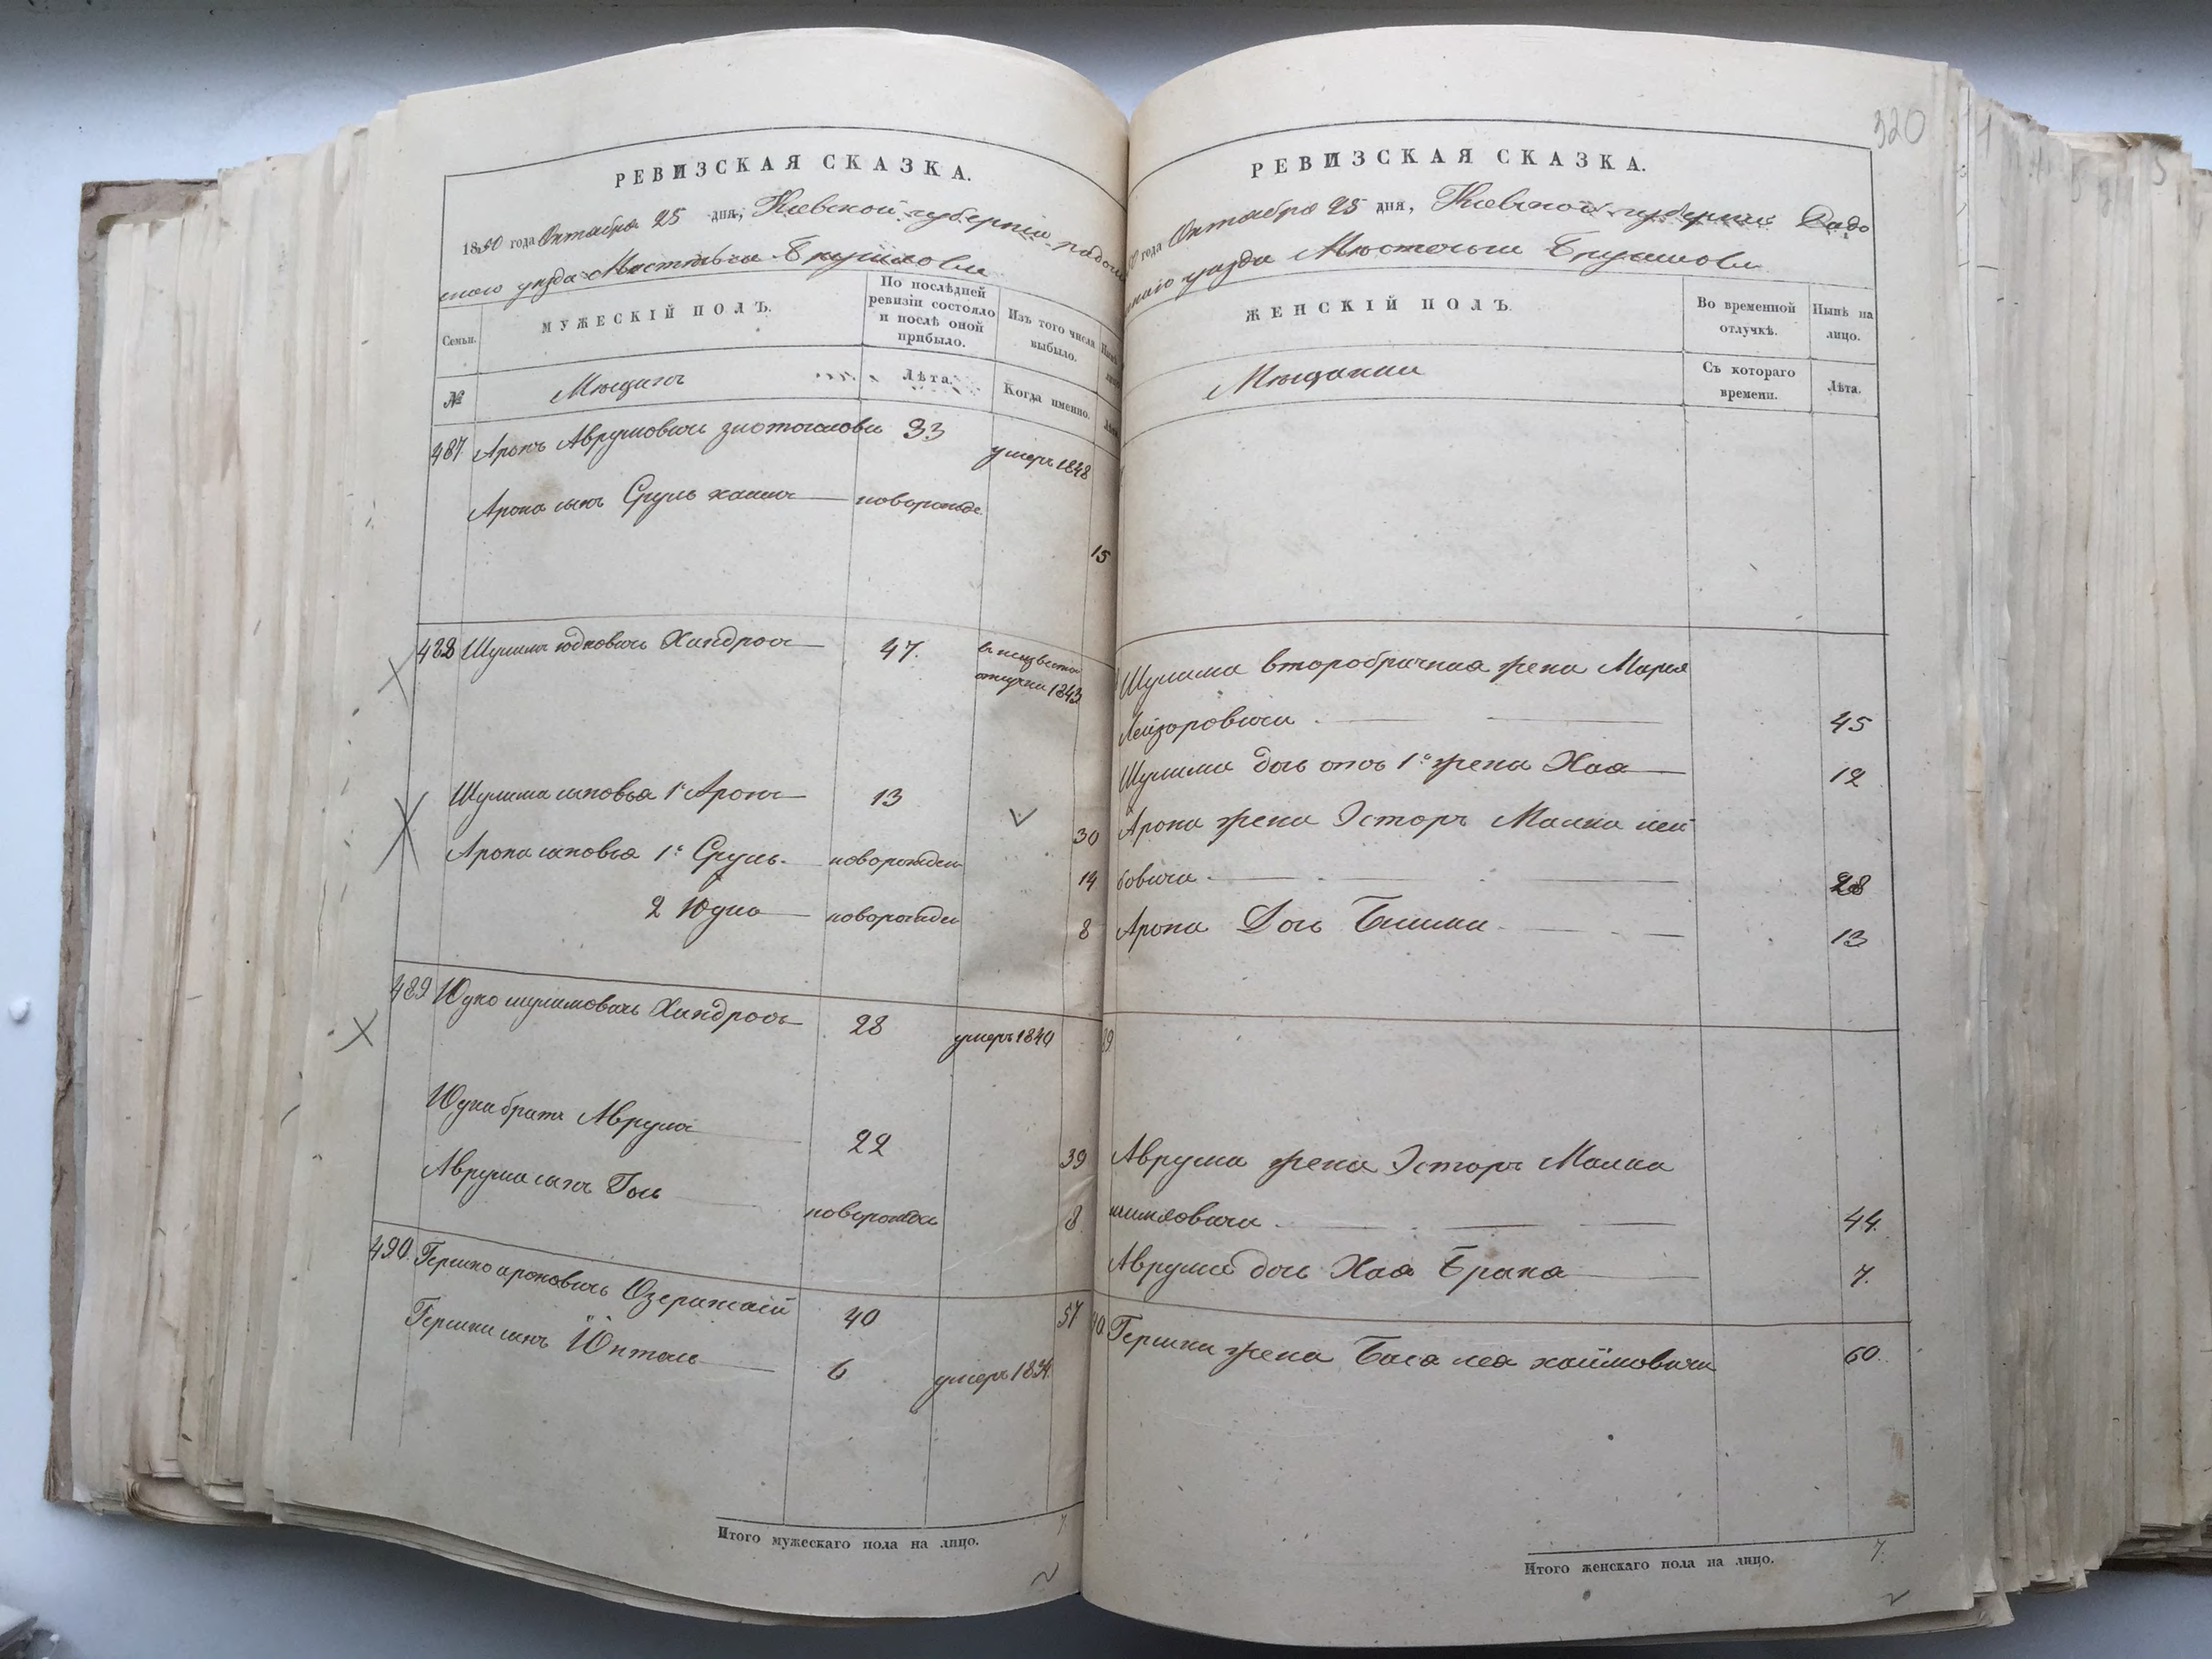 РЕВИЗСКАЯ СКАЗКА.
1850 года Октября 25 дня, Киевской губернiи Радомы
скаго уѣзда Мѣстечка Брусилова
Семьи.
МУЖЕСКIЙ ПОЛЪ.
По послѣдней ревизiи состояло и послѣ оной прибыло.
Изъ того числа выбыло.
№
Мѣщанъ
Лѣта.
Когда именно.
487 Аронъ Аврумовичъ 33 умеръ 1848
Арона сынъ Сруль новорожде. 15
488 Шулимъ Юдковичъ Хандросъ 47. въ неизвѣстн
отлучки 1843
Шулима сыновья 1й Аронъ 13 30
Арона сыновья 1й Сруль новорожден 14
2 Юдко новорожден 8
489 Юдко Шулимовичъ Хандросъ 28 умеръ 1840
Юдка братъ Аврумъ 22 39
Аврума сынъ Гось новорожде 8
490. Гершко Ароновичъ 40 57
Гершки сынъ 6 умеръ 1834.
Итого мужескаго пола на лицо. 7
320
РЕВИЗСКАЯ СКАЗКА.
года Октября 25 дня, Киевской губернiи Радо
скаго уѣзда Мѣстечка Брусилова
ЖЕНСКIЙ ПОЛЪ.
Во временной отлучкѣ.
Нынѣ на лицо.
Мѣщанки
Съ котораго времени.
Лѣта.
Шулима второбрачная жена Марья
Лейзоровичи 45
Шулима дочь отъ 1й жены Хая 12
Арона жена Эстеръ Малка лей
бовичи 28
Арона Дочь 13
Аврума жена Эстеръ Малка
44.
Аврума дочь Хая Брана 7.
Гершки жена Бася Лея Хаимовичи 60.
Итого женскаго пола на лицо. 7.